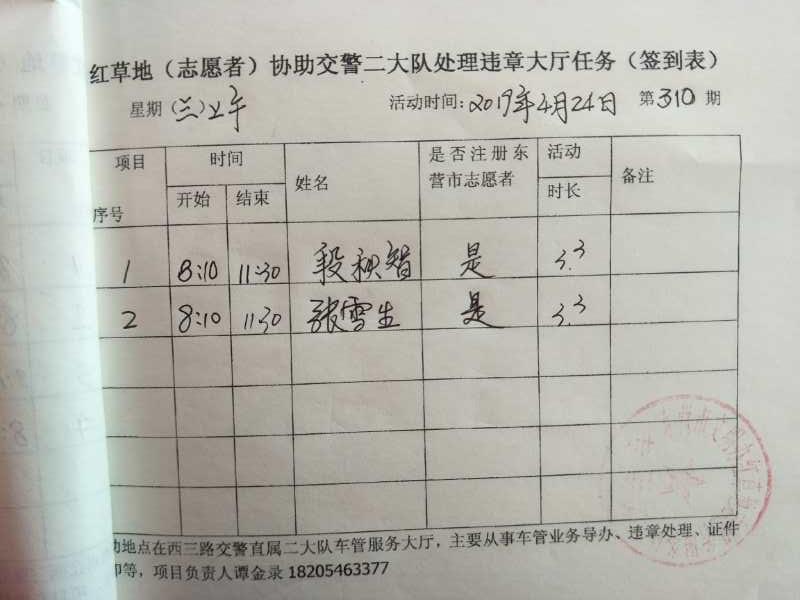 红草地（志愿者）协助交警二大队处理违章大厅任务（签到表）
星期（三）上午 活动时间：2019年4月24日 第310期
项目 时间 姓名 是否注册东营市志愿者 活动时长 备注
序号 开始 结束
1 8:10 11:30 段秋智 是 3.3
2 8:10 11:30 张雪生 是 3.3
动地点在西三路交警直属二大队车管服务大厅，主要从事车管业务导办、违章处理、证件
印等，项目负责人谭金录 18205463377